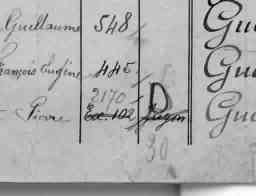 Guillaume 548 Gu
François Eugène 445 Gu
2170 D
Pierre Ex. 102 Gu
30